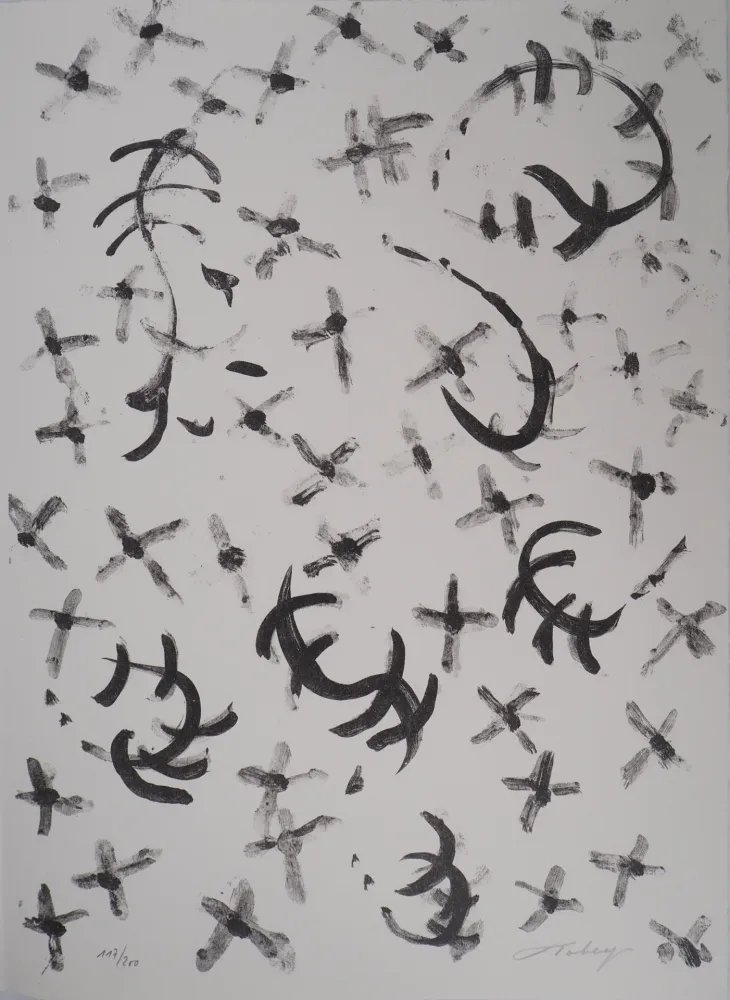 117/200
Tobey